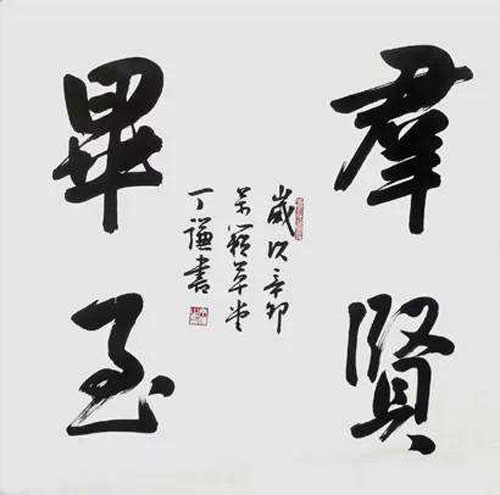 羣賢
畢至
歲次辛卯
草堂
丁謙書